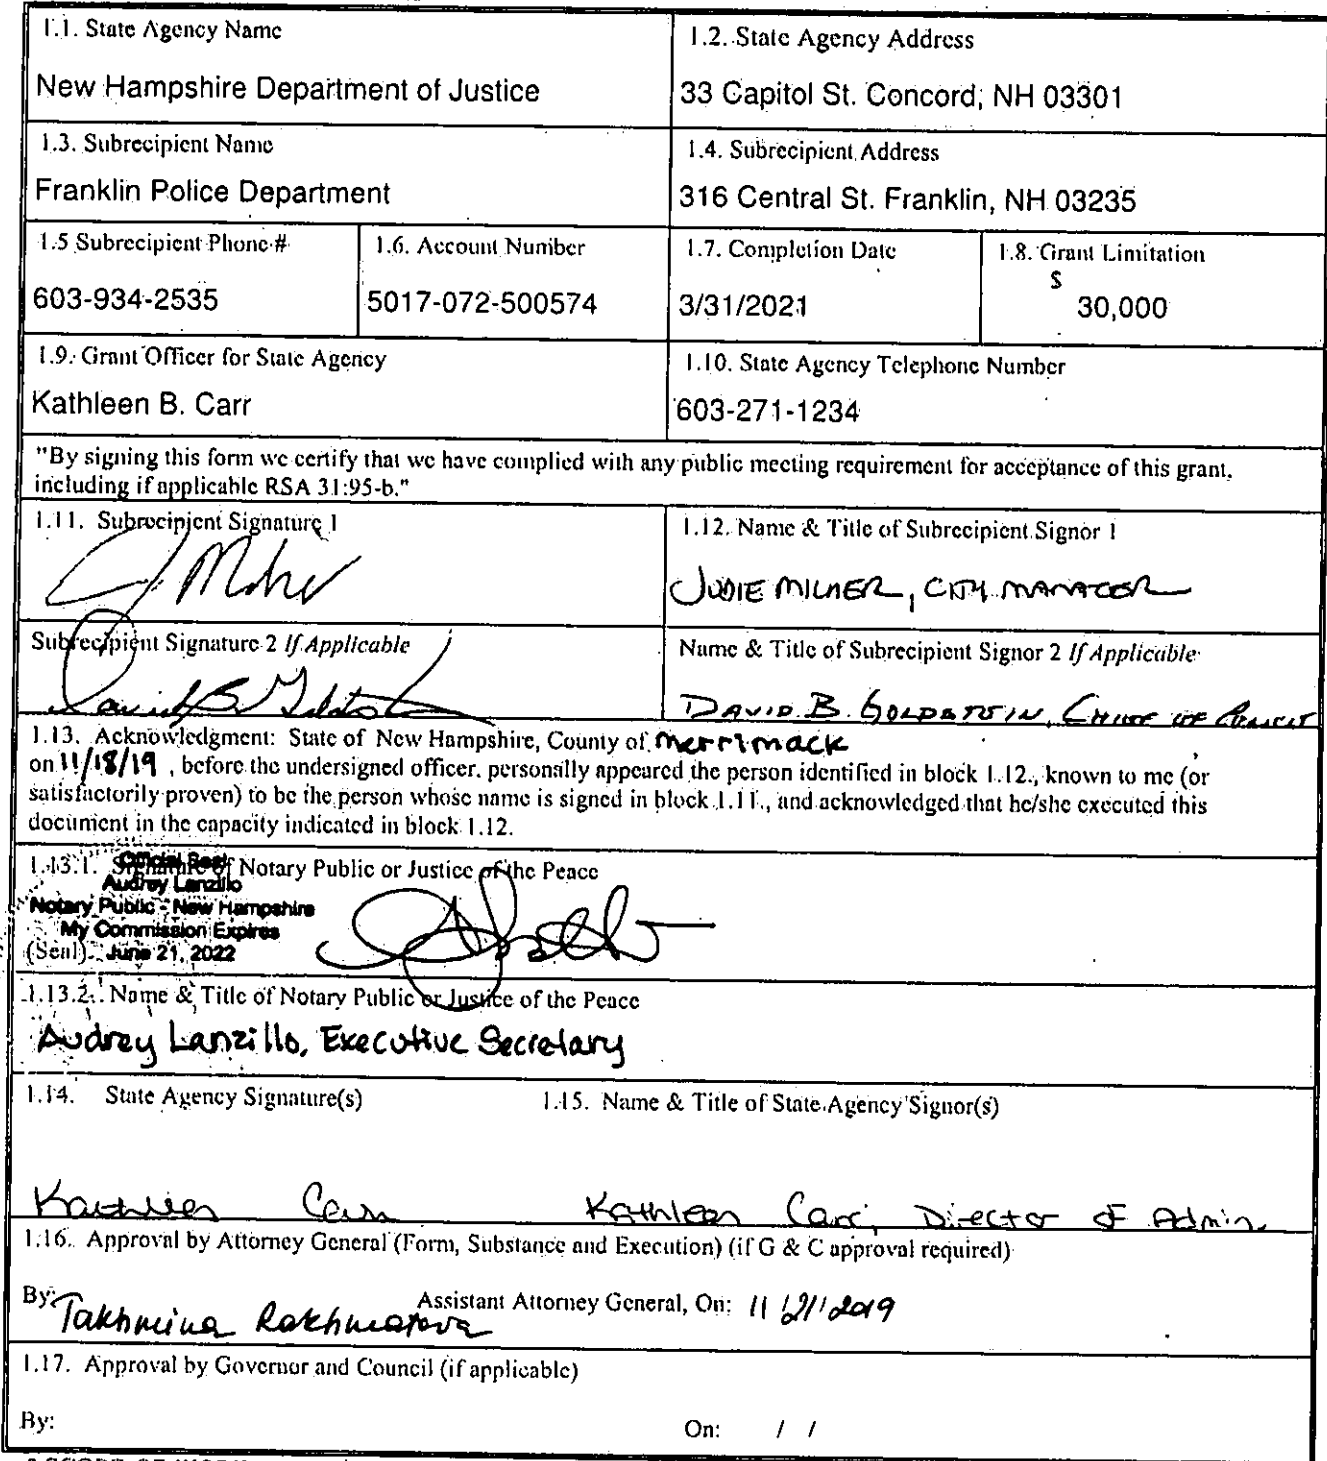 1.1. State Agency Name
New Hampshire Department of Justice
1.2. State Agency Address
33 Capitol St. Concord, NH 03301
1.3. Subrecipient Name
Franklin Police Department
1.4. Subrecipient Address
316 Central St. Franklin, NH 03235
1.5 Subrecipient Phone #
603-934-2535
1.6. Account Number
5017-072-500574
1.7. Completion Date
3/31/2021
1.8. Grant Limitation
$ 30,000
1.9. Grant Officer for State Agency
Kathleen B. Carr
1.10. State Agency Telephone Number
603-271-1234
"By signing this form we certify that we have complied with any public meeting requirement for acceptance of this grant,
including if applicable RSA 31:95-b."
1.11. Subrecipient Signature 1
1.12. Name & Title of Subrecipient Signor 1
JUDIE MILNER, CITY MANAGER
Subrecipient Signature 2 If Applicable
Name & Title of Subrecipient Signor 2 If Applicable
DAVID B. GOLDSTEIN, CHIEF OF POLICE
1.13. Acknowledgment: State of New Hampshire, County of Merrimack
on 11/18/19 , before the undersigned officer, personally appeared the person identified in block 1.12., known to me (or
satisfactorily proven) to be the person whose name is signed in block 1.11., and acknowledged that he/she executed this
document in the capacity indicated in block 1.12.
1.13.1. Signature of Notary Public or Justice of the Peace
Official Seal
Audrey Lanzillo
Notary Public - New Hampshire
My Commission Expires
(Seal) June 21, 2022
1.13.2. Name & Title of Notary Public or Justice of the Peace
Audrey Lanzillo, Executive Secretary
1.14. State Agency Signature(s)
1.15. Name & Title of State Agency Signor(s)
Kathleen Carr
Kathleen Carr, Director of Admin.
1.16. Approval by Attorney General (Form, Substance and Execution) (if G & C approval required)
By: Takhmina Rakhmatova Assistant Attorney General, On: 11/21/2019
1.17. Approval by Governor and Council (if applicable)
By: On: / /